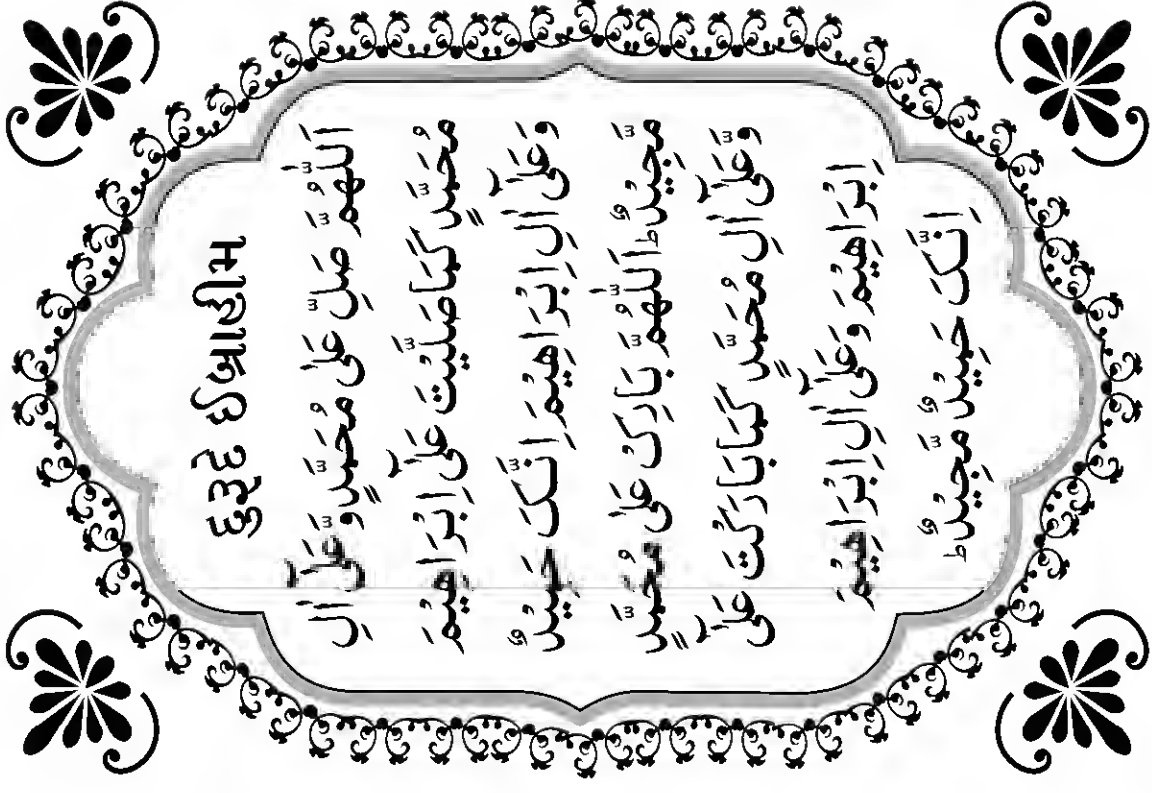 દુરૂદે ઈબ્રાહીમ
اَللّٰهُمَّ صَلِّ عَلٰی مُحَمَّدٍ وَّعَلٰٓی اٰلِ
مُحَمَّدٍ كَمَا صَلَّيْتَ عَلٰٓی اِبْرَاهِيْمَ
وَعَلٰٓی اٰلِ اِبْرَاهِيْمَ اِنَّكَ حَمِيْدٌ
مَّجِيْدٌؕ اَللّٰهُمَّ بَارِكْ عَلٰی مُحَمَّدٍ
وَّعَلٰٓی اٰلِ مُحَمَّدٍ كَمَا بَارَكْتَ عَلٰٓی
اِبْرَاهِيْمَ وَعَلٰٓی اٰلِ اِبْرَاهِيْمَ
اِنَّكَ حَمِيْدٌ مَّجِيْدٌؕ